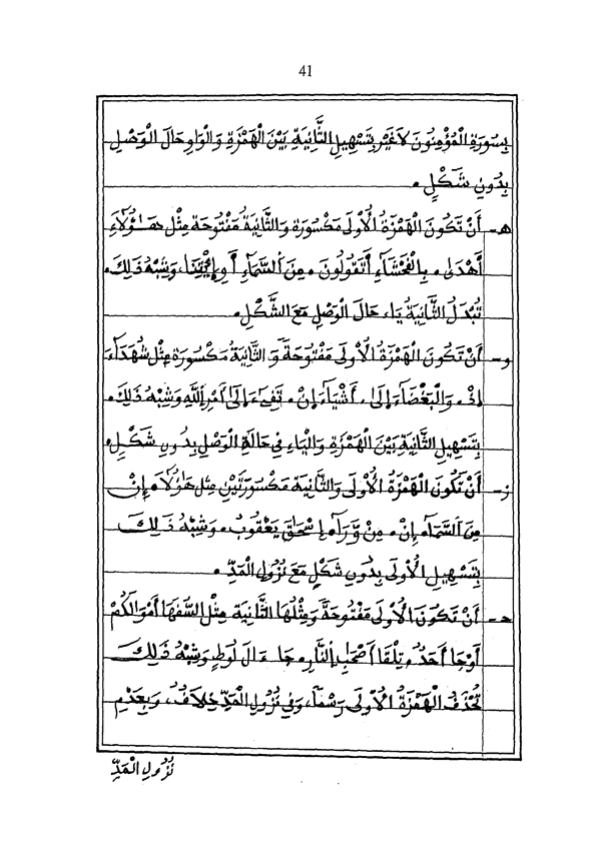 41
بِسُورَةِ الْمُؤْمِنُونَ لاَغَيْر بِتَسْهِيلِ الثَّانِيَةِ بَيْنَ الْهَمْزَةِ وَالْوَاوِ حَالَ الْوَصْلِ
بِدُونِ شَكْلٍ .
هـ - أَنْ تَكُونَ الْهَمْزَةُ الْأُولَى مَكْسُورَة وَالثَّانِيَةُ مَفْتُوحَة مِثْل هَـٰؤُلَاءِ
أَهْدَىٰ . بِالْفَحْشَاءِ أَتَقُولُونَ . مِنَ اَلسَّمَاءِ أَوِ اِئْتِنَا، وَشِبْهُ ذَلِكَ .
تُبْدَلُ الثَّانِيَةُ يَاء، حَالَ الْوَصْلِ مَعَ الشَّكْلِ .
و - أَنْ تَكُونَ الْهَمْزَةُ الْأُولَى مَفْتُوحَة وَ الثَّانِيَةُ مَكْسُورَة مِثْل شُهَدَاءَ
إِذْ . وَالْبَغْضَاءَ إِلَىٰ . أَشْيَاءَ إِنْ . تَفِىءَ إِلَىٰ أَمْرِ اِللَّهِ وَشِبْهُ ذَلِكَ .
بِتَسْهِيلِ الثَّانِيَةِ بَيْنَ الْهَمْزَةِ وَالْيَاءِ فِي حَالَةِ الْوَصْلِ بِدُونِ شَكْلٍ .
ز - أَنْ تَكُونَ الْهَمْزَةُ الْأُولَى وَالثَّانِيَة مَكْسُورَتَيْنِ مِثْل هَٰؤُلَاءِ إِنْ
مِنَ اَلسَّمَاءِ إِنْ . مِنْ وَّرَآءِ اِسْحَٰقَ يَعْقُوبُ . وَشِبْهُ ذَلِكَ
بِتَسْهِيلِ الْأُولَى بِدُونِ شَكْلٍ مَعَ نُزُولِ الْمَدِّ .
حـ - أَنْ تَكُونَ الْأُولَى مَفْتُوحَة وَمِثْلُهَا الثَّانِيَة مِثْل السُّفَهَا أَمْوَالَكُمْ
أَوْجَا أَحَدٌ . تِلْقَا أَصْحَٰبِ اِلنَّارِ . جَا ءَالَ لُوطٍ وَشِبْهُ ذَلِكَ
تُحْذَفُ الْهَمْزَةُ الْأُولَى رَسْماً، وَفِي نُزُولِ الْمَدِّ خِلَافٌ، وَبِعَدَمِ
نُزُولِ الْمَدِّ